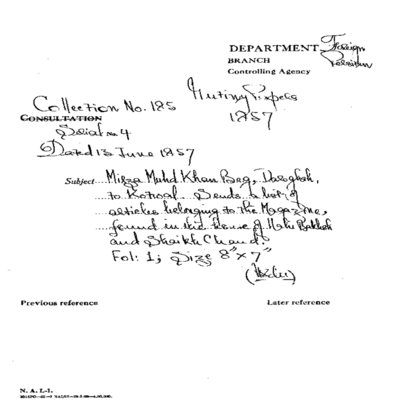 DEPARTMENT Foreign
BRANCH Persian
Controlling Agency
Mutiny Papers
1857
Collection No. 185
CONSULTATION
Serial No 4
Dated 13 June 1857
Subject Mirza Muhd Khan Beg, Darogha,
to Kotwal Sends a list of
articles belonging to the Magazine,
found in the house of Bakhsh
and Shaikh Chand.
Fol: 1; Size 8" x 7"
Previous reference
Later reference
N. A. I.-1.